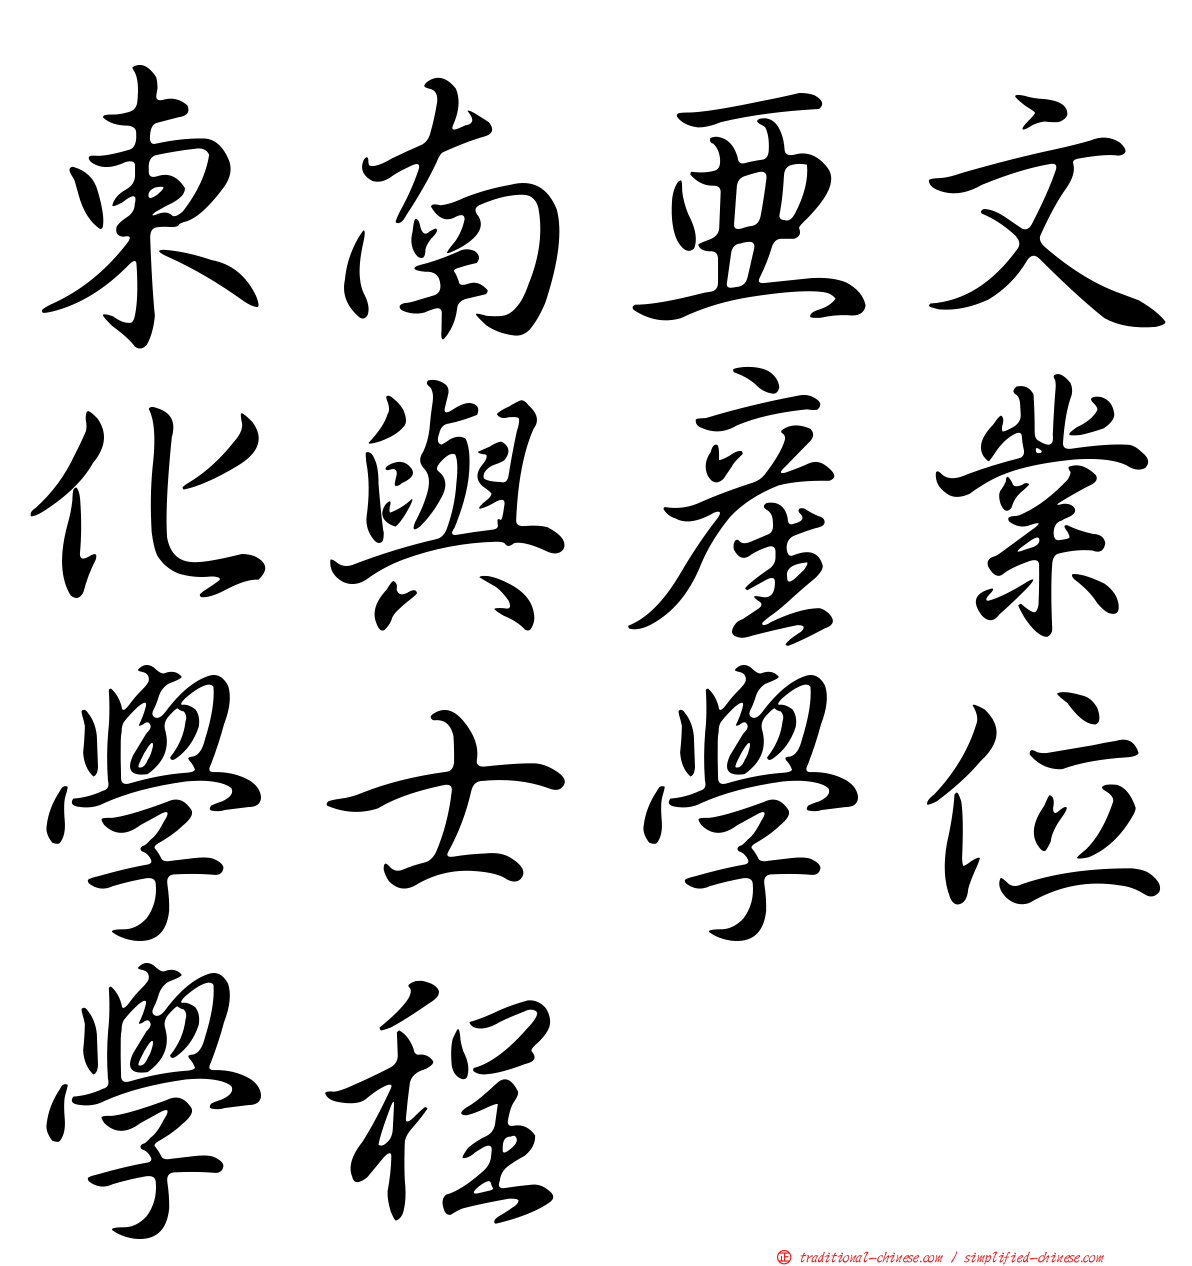 東南亞文
化與產業
學士學位
學程
㊣ traditional-chinese.com / simplified-chinese.com